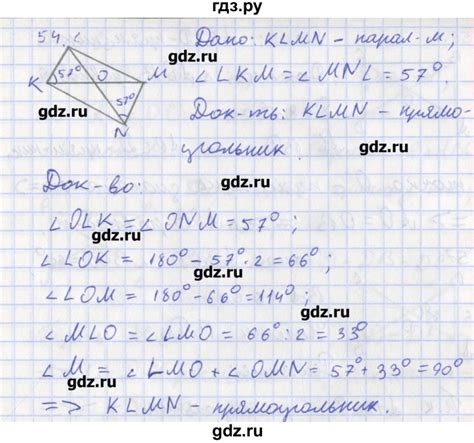 гдз.ру
54.
L
K 57° O M
57°
N
gdz.ru
Дано: KLMN – парал-м;
∠ LKM = ∠ MNL = 57°.
gdz.ru
Док-ть: KLMN – прямо-
угольник.
gdz.ru
Док-во:
gdz.ru
∠ OLK = ∠ ONM = 57°;
∠ LOK = 180° – 57°·2 = 66°;
gdz.ru
∠ LOM = 180° – 66° = 114°;
gdz.ru
∠ MLO = ∠ LMO = 66° : 2 = 33°
gdz.ru
∠ M = ∠ LMO + ∠ OMN = 57° + 33° = 90°
gdz.ru
=> KLMN – прямоугольник.
gdz.ru